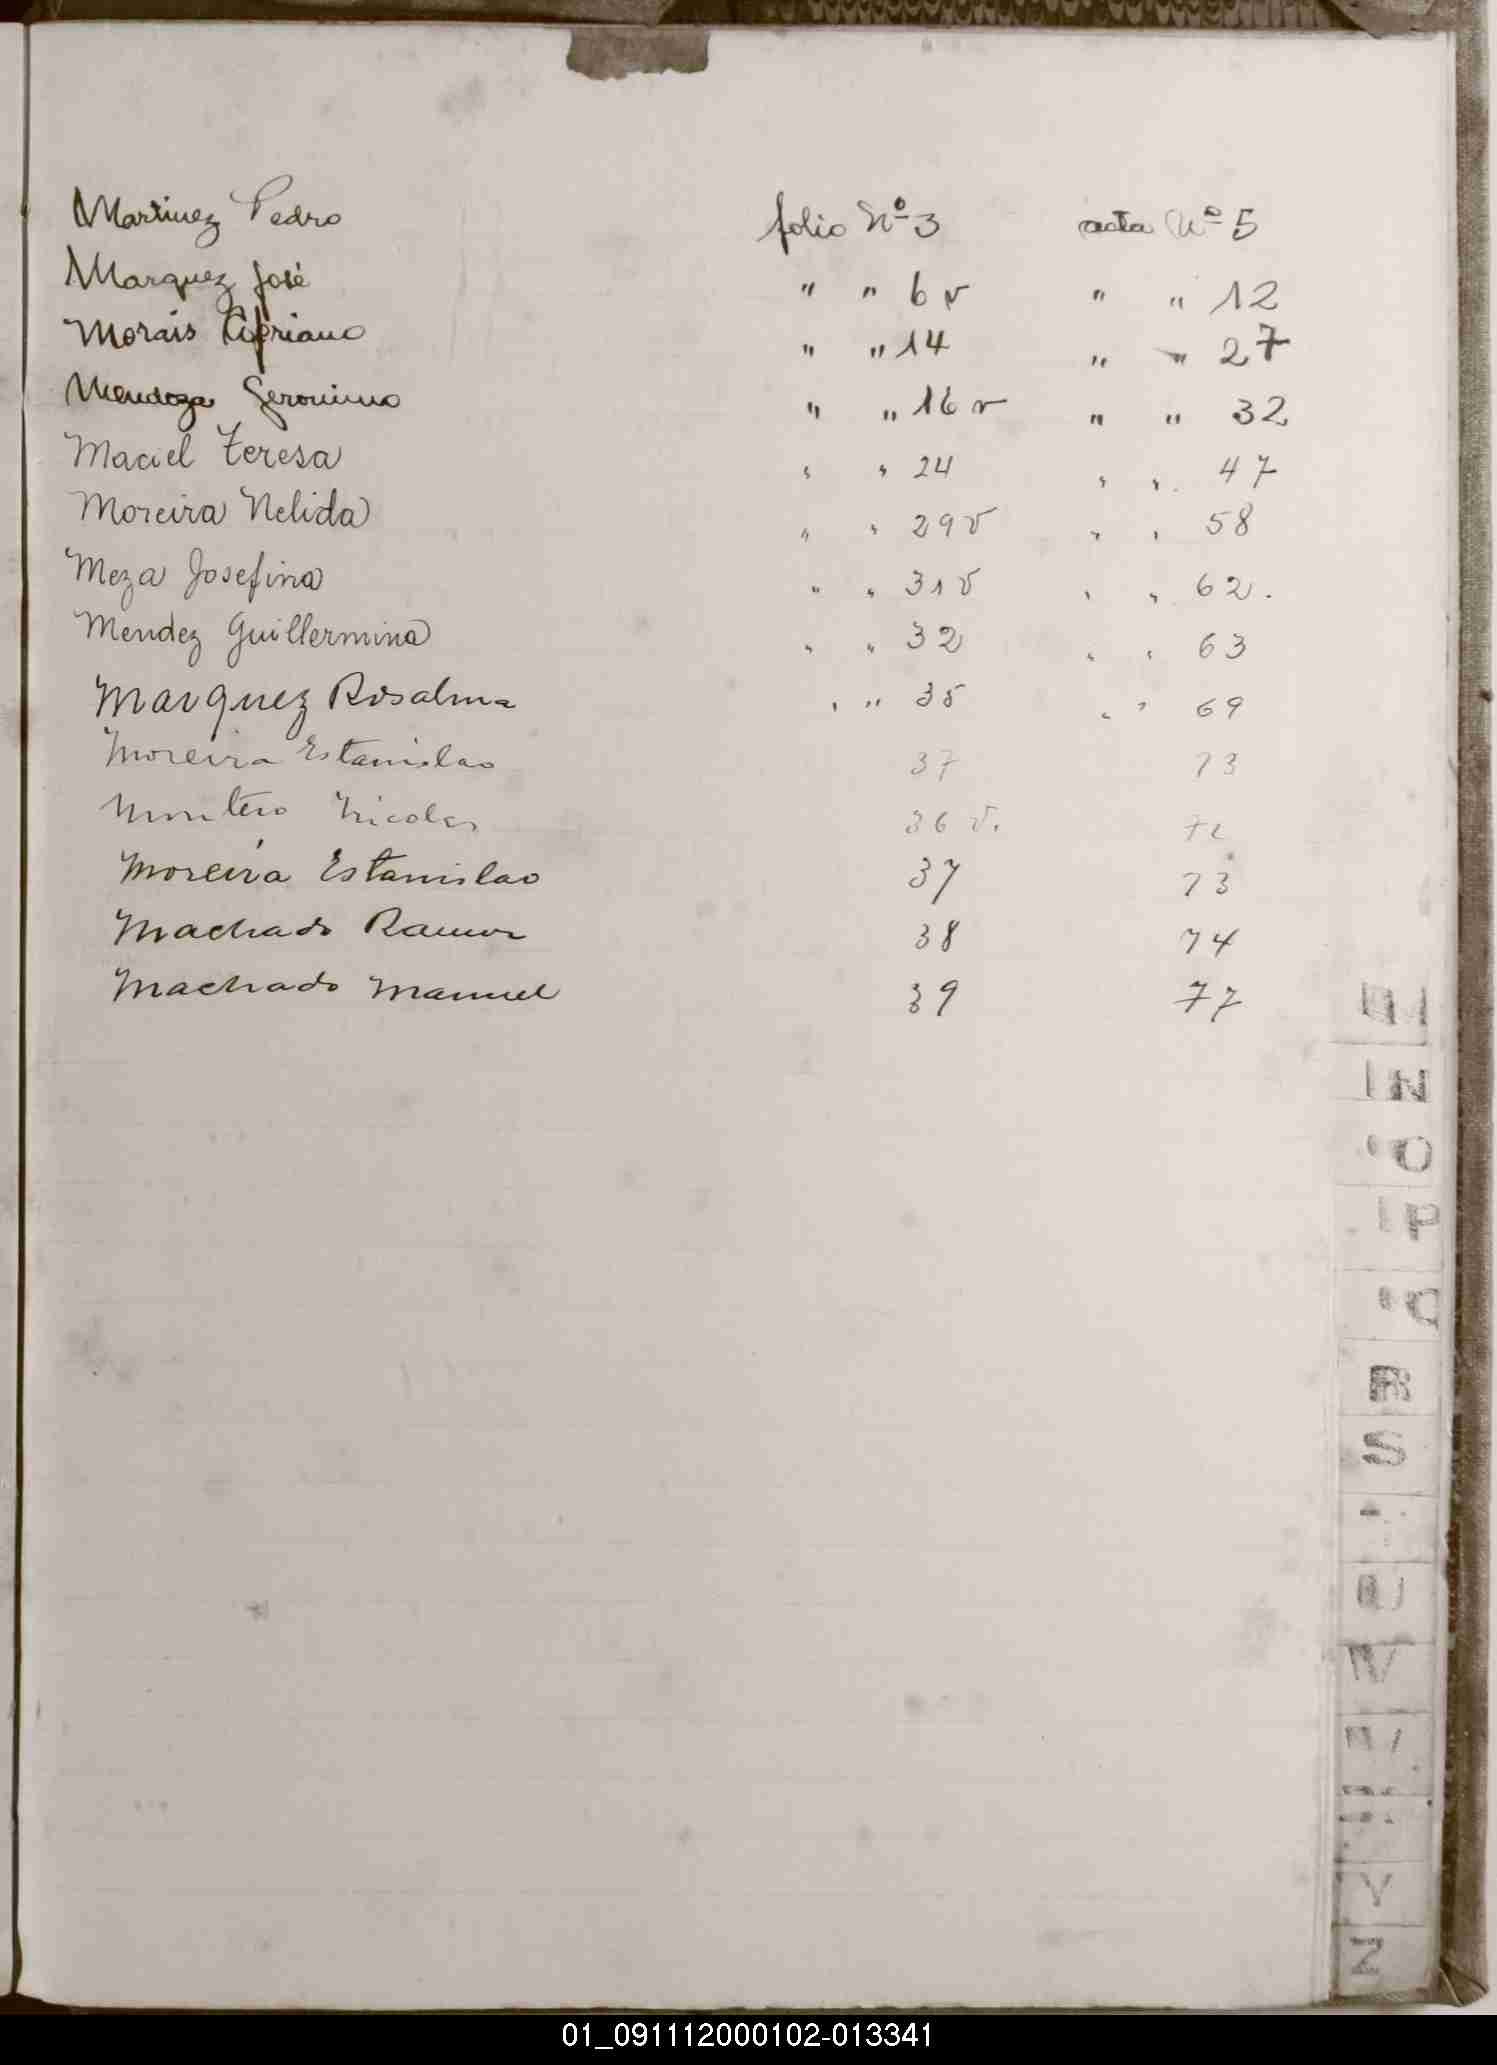 Martinez Pedro folio Nº 3 acta Nº 5
Marquez José " " 6 v " " 12
Morais Cipriano " " 14 " " 27
Mendoza Geronimo " " 16 v " " 32
Maciel Teresa " " 24 " " 47
Moreira Nelida " " 29 v " " 58
Meza Josefina " " 31 v " " 62.
Mendez Guillermina " " 32 " " 63
Marquez Rosalina " " 35 " " 69
Moreira Estanislao 37 73
Montero Nicolas 36 v. 72
Moreira Estanislao 37 73
Machado Ramon 38 74
Machado Manuel 39 77
M
N
O
P
Q
R
S
U
V
Y
Z
01_091112000102-013341